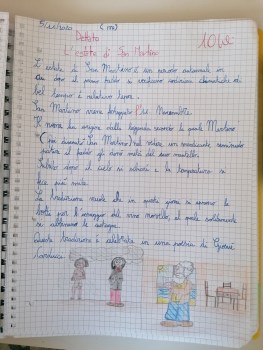 (176)
Dettato
10 lode
L'estate di San Martino
L'estate di San Martino è un periodo autunnale in
cui dopo il primo freddo si verificano condizioni climatiche di
bel tempo e relativo tepore.
San Martino viene festeggiato l'11 Novembre.
Il nome ha origine dalla leggenda secondo la quale Martino
(poi diventato San Martino) nel vedere un mendicante seminudo
patire il freddo gli donò metà del suo mantello.
Subito dopo il cielo si schiarì e la temperatura si
fece più mite.
La tradizione vuole che in questo giorno si aprano le
botti per l'assaggio del vino novello, al quale solitamente
si abbinano le castagne.
Questa tradizione è celebrata in una poesia di Giosuè
Carducci.